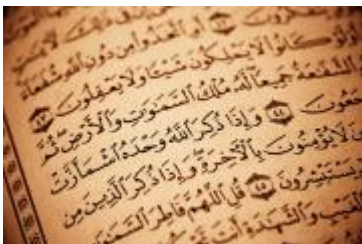 فِى ذَٰلِكَ لَآيَٰتٍ
يَتَفَكَّرُونَ ٤٢ أَمِ ٱتَّخَذُوا۟ مِن دُونِ ٱللَّهِ شُفَعَآءَ
أَوَلَوْ كَانُوا۟ لَا يَمْلِكُونَ شَيْـًٔا وَلَا يَعْقِلُونَ ٤٣
ٱلشَّفَٰعَةُ جَمِيعًا لَّهُۥ مُلْكُ ٱلسَّمَٰوَٰتِ وَٱلْأَرْضِ ثُمَّ
جَعُونَ ٤٤ وَإِذَا ذُكِرَ ٱللَّهُ وَحْدَهُ ٱشْمَأَزَّتْ
لَا يُؤْمِنُونَ بِٱلْآخِرَةِ وَإِذَا ذُكِرَ ٱلَّذِينَ مِن
يَسْتَبْشِرُونَ ٤٥ قُلِ ٱللَّهُمَّ فَاطِرَ ٱلسَّمَٰوَٰتِ
غَيْبِ وَٱلشَّهَٰدَةِ أَنتَ